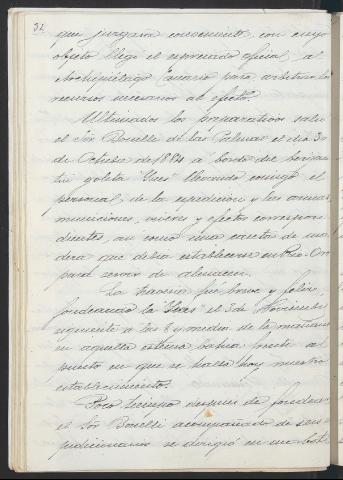 32
que juzgara conveniente, con cuyo
objeto llegó el expresado oficial al
Archipiélago Canario para arbitrar los
recursos necesarios al efecto.
Ultimados los preparativos salió
el Sor Bonelli de las Palmas el dia 30
de Octubre de 1884 a bordo del bergan
tin goleta "Ynes" llevando consigo el
personal de la expedicion y las armas
municiones, viveres y efectos correspon
dientes, asi como una caseta de ma
dera que debia establecerse en Rio-Oro
para servir de almacen.
La travesia fué breve y feliz,
fondeando la "Ynes" el 3 de Noviembre
siguiente a las 8 y media de la mañana
en aquella extensa bahia frente al
puesto en que se halla hoy nuestro
establecimiento.
Poco tiempo despues de fondear
el Sor Bonelli acompañado de sus
expedicionarios se dirigió en un bote